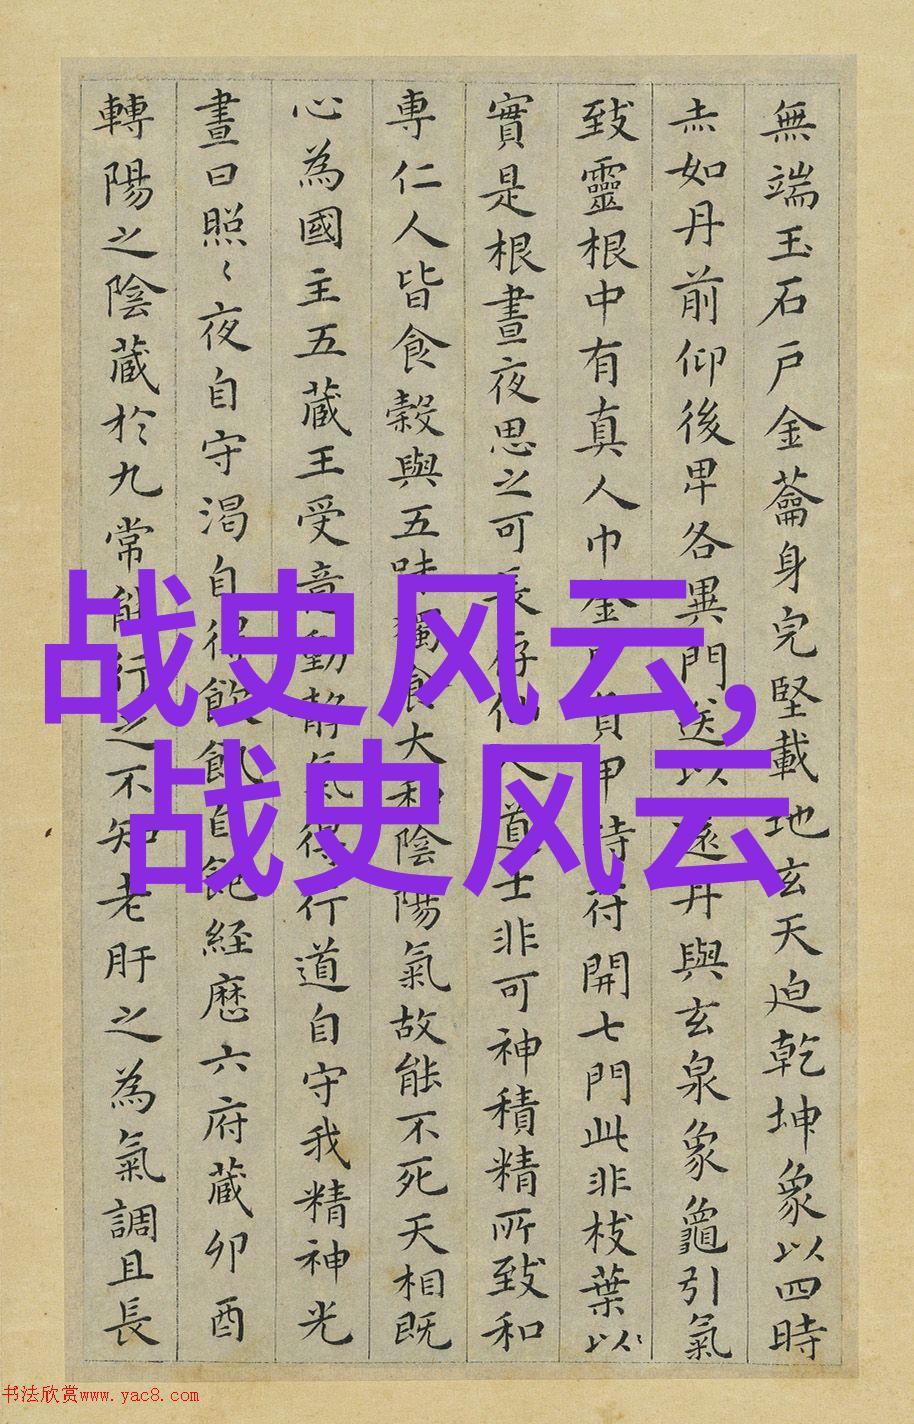 無端玉石戶金蘥身完堅載地玄天迫乾坤象以四時
赤如丹前仰後卑各異門送以還丹與玄泉象龜引氣
致靈根中有真人巾金巾負甲持符開七門此非枝葉以
實是根晝夜思之可長存仙人道士非可神積精所致和
專仁人皆食穀與五味獨食大和陰陽氣故能不死天相既
心為國主五藏王受意動靜氣得行道自守我精神光
晝日照〻夜自守渴自得飲飢自飽經歷六府藏卯酉
轉陽之陰藏於九常能行之不知老肝之為氣調且長
战史风云,
战史风云
书法欣赏www.yac8.com